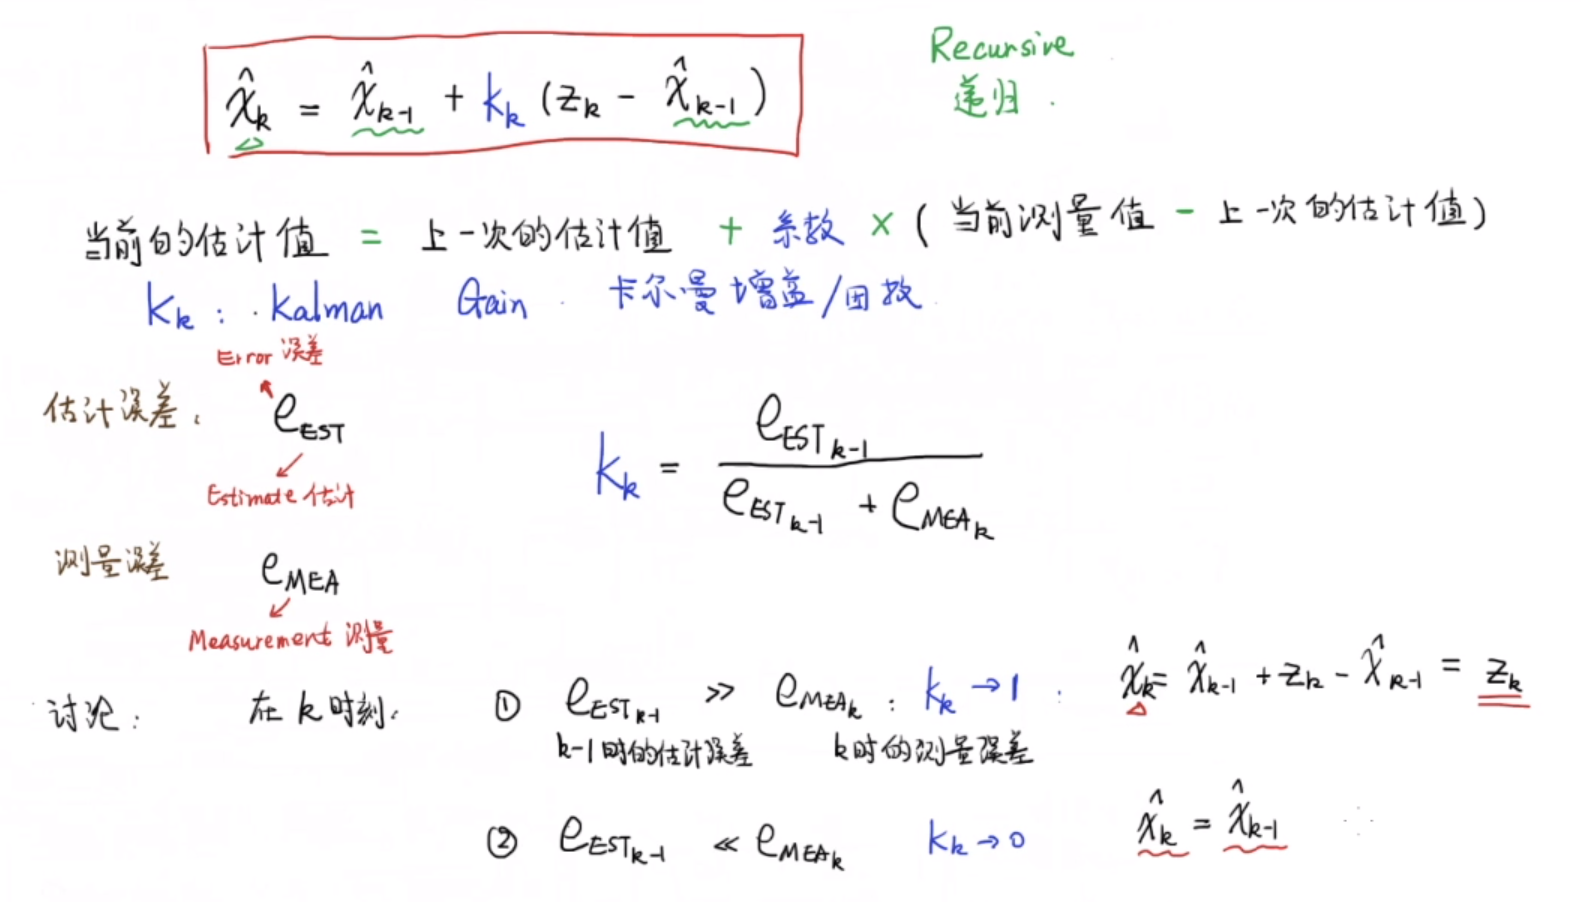 x̂ₖ = x̂ₖ₋₁ + kₖ (zₖ - x̂ₖ₋₁)
Recursive
递归.
当前的估计值 = 上一次的估计值 + 系数 × (当前测量值 - 上一次的估计值)
kₖ : Kalman Gain. 卡尔曼增益/因数
Error 误差
估计误差: e_EST
Estimate 估计
kₖ = e_EST k-1 / (e_EST k-1 + e_MEA k)
测量误差 e_MEA
Measurement 测量
讨论: 在k时刻. ① e_EST k-1 ≫ e_MEA k : kₖ → 1 : x̂ₖ = x̂ₖ₋₁ + zₖ - x̂ₖ₋₁ = zₖ
k-1时的估计误差 k时的测量误差
② e_EST k-1 ≪ e_MEA k kₖ → 0 x̂ₖ = x̂ₖ₋₁